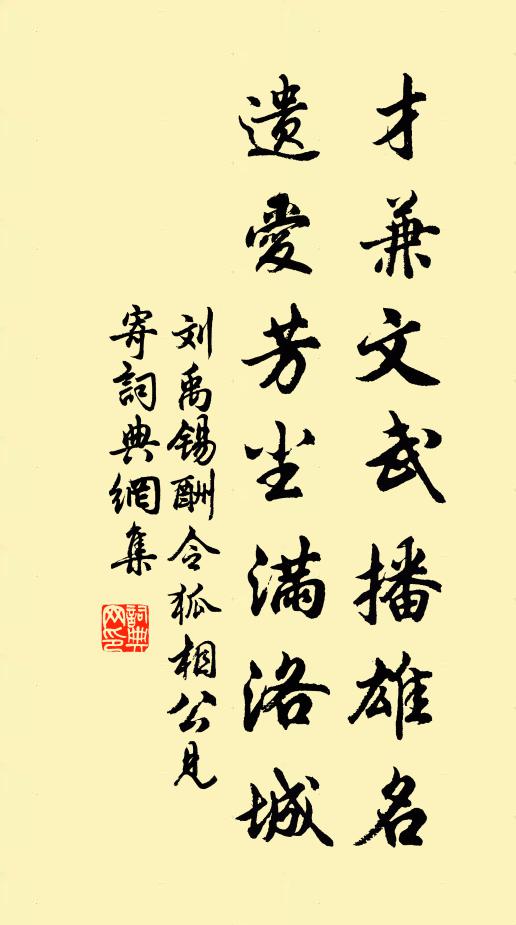 才兼文武播雄名
遗爱芳尘满洛城
刘禹锡酬令狐相公见
寄詞典網集
詞典網印